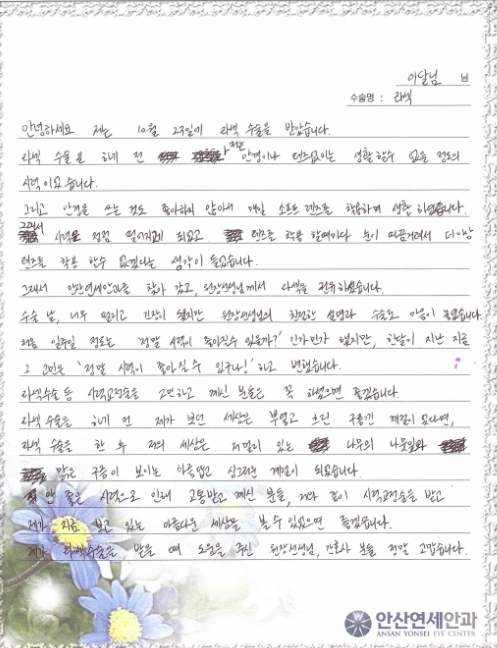 이달님 님
수술명 : 라섹
안녕하세요. 저는 10월 27일에 라섹 수술을 받았습니다.
라섹 수술을 하기 전 저는 안경이나 렌즈없이는 생활 할수 없을 정도의
시력이었습니다.
그리고 안경을 쓰는 것도 좋아하지 않아서 매일 소프트 렌즈를 착용하며 생활 하였습니다.
그래서 시력은 점점 떨어지게 되었고, 렌즈를 착용 할때마다 눈이 따끔거려서 더이상
렌즈를 착용 할수 없겠다는 생각이 들었습니다.
그래서 안산연세안과를 찾아 갔고, 원장선생님께서 라섹을 권유하셨습니다.
수술 날, 너무 떨리고 긴장이 됐지만 원장선생님의 친절한 설명과 수술로 마음이 놓였습니다.
처음 일주일 정도는 '정말 시력이 좋아질수 있을까?' 긴가민가 했지만, 한달이 지난 지금
그 고민은 '정말 시력이 좋아질 수 있구나!' 하고 변했습니다.
라섹수술 등 시력교정술을 고민하고 계신 분들은 꼭 하셨으면 좋겠습니다.
라섹 수술을 하기 전 제가 보던 세상은 뿌옇고 흐린 구름낀 계절이 었다면,
라섹 수술을 한 후 저의 세상은 저멀리 있는 나무의 나뭇잎과
맑은 구름이 보이는 아름답고 싱그러운 계절이 되었습니다.
안 좋은 시력으로 인해 고통받고 계신 분들, 저와 같이 시력교정술을 받고
제가 지금 보고 있는 아름다운 세상을 볼 수 있었으면 좋겠습니다.
제가 라섹수술을 받을 때 도움을 주신 원장선생님, 간호사 분들 정말 고맙습니다.
안산연세안과
ANSAN YONSEI EYE CENTER